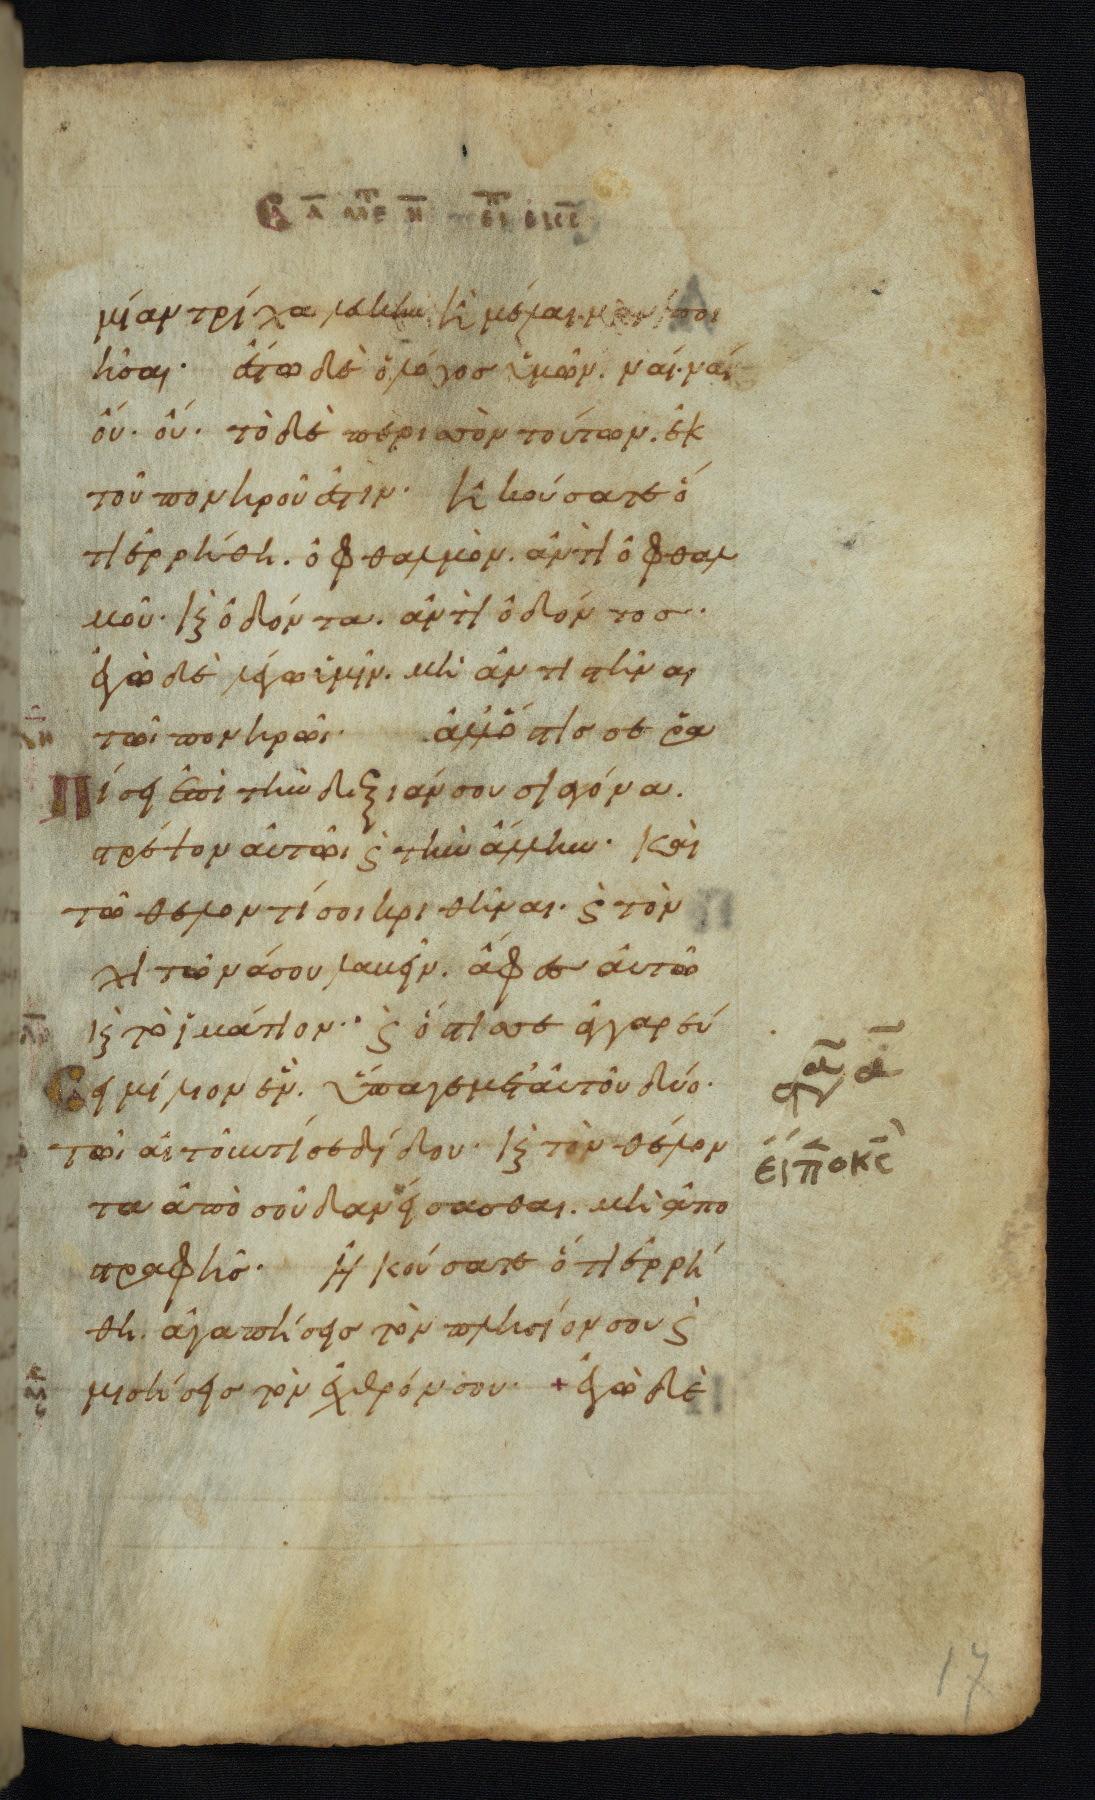 μίαν τρίχα λευκὴν ἢ μέλαιναν ποι
ῆσαι· ἔστω δὲ ὁ λόγοσ ὑμῶν. ναί· ναί
οὔ· οὔ· τὸ δὲ περισσὸν τούτων. ἐκ
τοῦ πονηροῦ ἐστιν· ἠκούσατε ὅ
τι ἐρρήθη. ὀφθαλμὸν. ἀντὶ ὀφθαλ
μοῦ· κ̀ ὀδόντα. ἀντὶ ὀδόντοσ·
ἐγὼ δὲ λέγω ὑμῖν. μὴ ἀντιστῆναι
τῶι πονηρῶι· ἀλλ' ὅστισ σε ρα
πίσει ἐπὶ τὴν δεξιάν σου σιαγόνα.
στρέψον αὐτῶι ϗ τὴν ἄλλην· καὶ
τῶ θέλοντί σοι κριθῆναι· ϗ τὸν
χιτῶνά σου λαβεῖν. ἄφεσ αὐτῶ
κ̀ τὸ ἱμάτιον· ϗ ὅστισ σε ἀγγαρεύ
σει μίλιον ἕν. ὕπαγε μετ' αὐτοῦ δύο·
τῶι αἰτοῦντί σε δίδου· κ̀ τὸν θέλον
τα ἀπὸ σοῦ δανείσασθαι. μὴ ἀπο
στραφῆσ· Ἠκούσατε ὅτι ἐρρή
θη. ἀγαπήσεισ τὸν πλησίον σου ϗ
μισήσεισ τὸν ἐχθρόν σου· + ἐγὼ δὲ
εἶπ ο κς
17